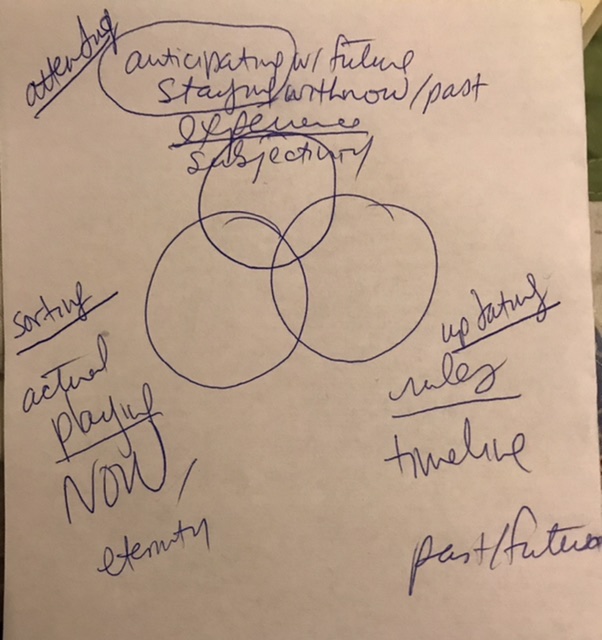 attending
anticipating w/ future
staying with now/past
experience
subjectivity
sorting
actual
playing
NOW/
eternity
updating
rules
timeline
past/future